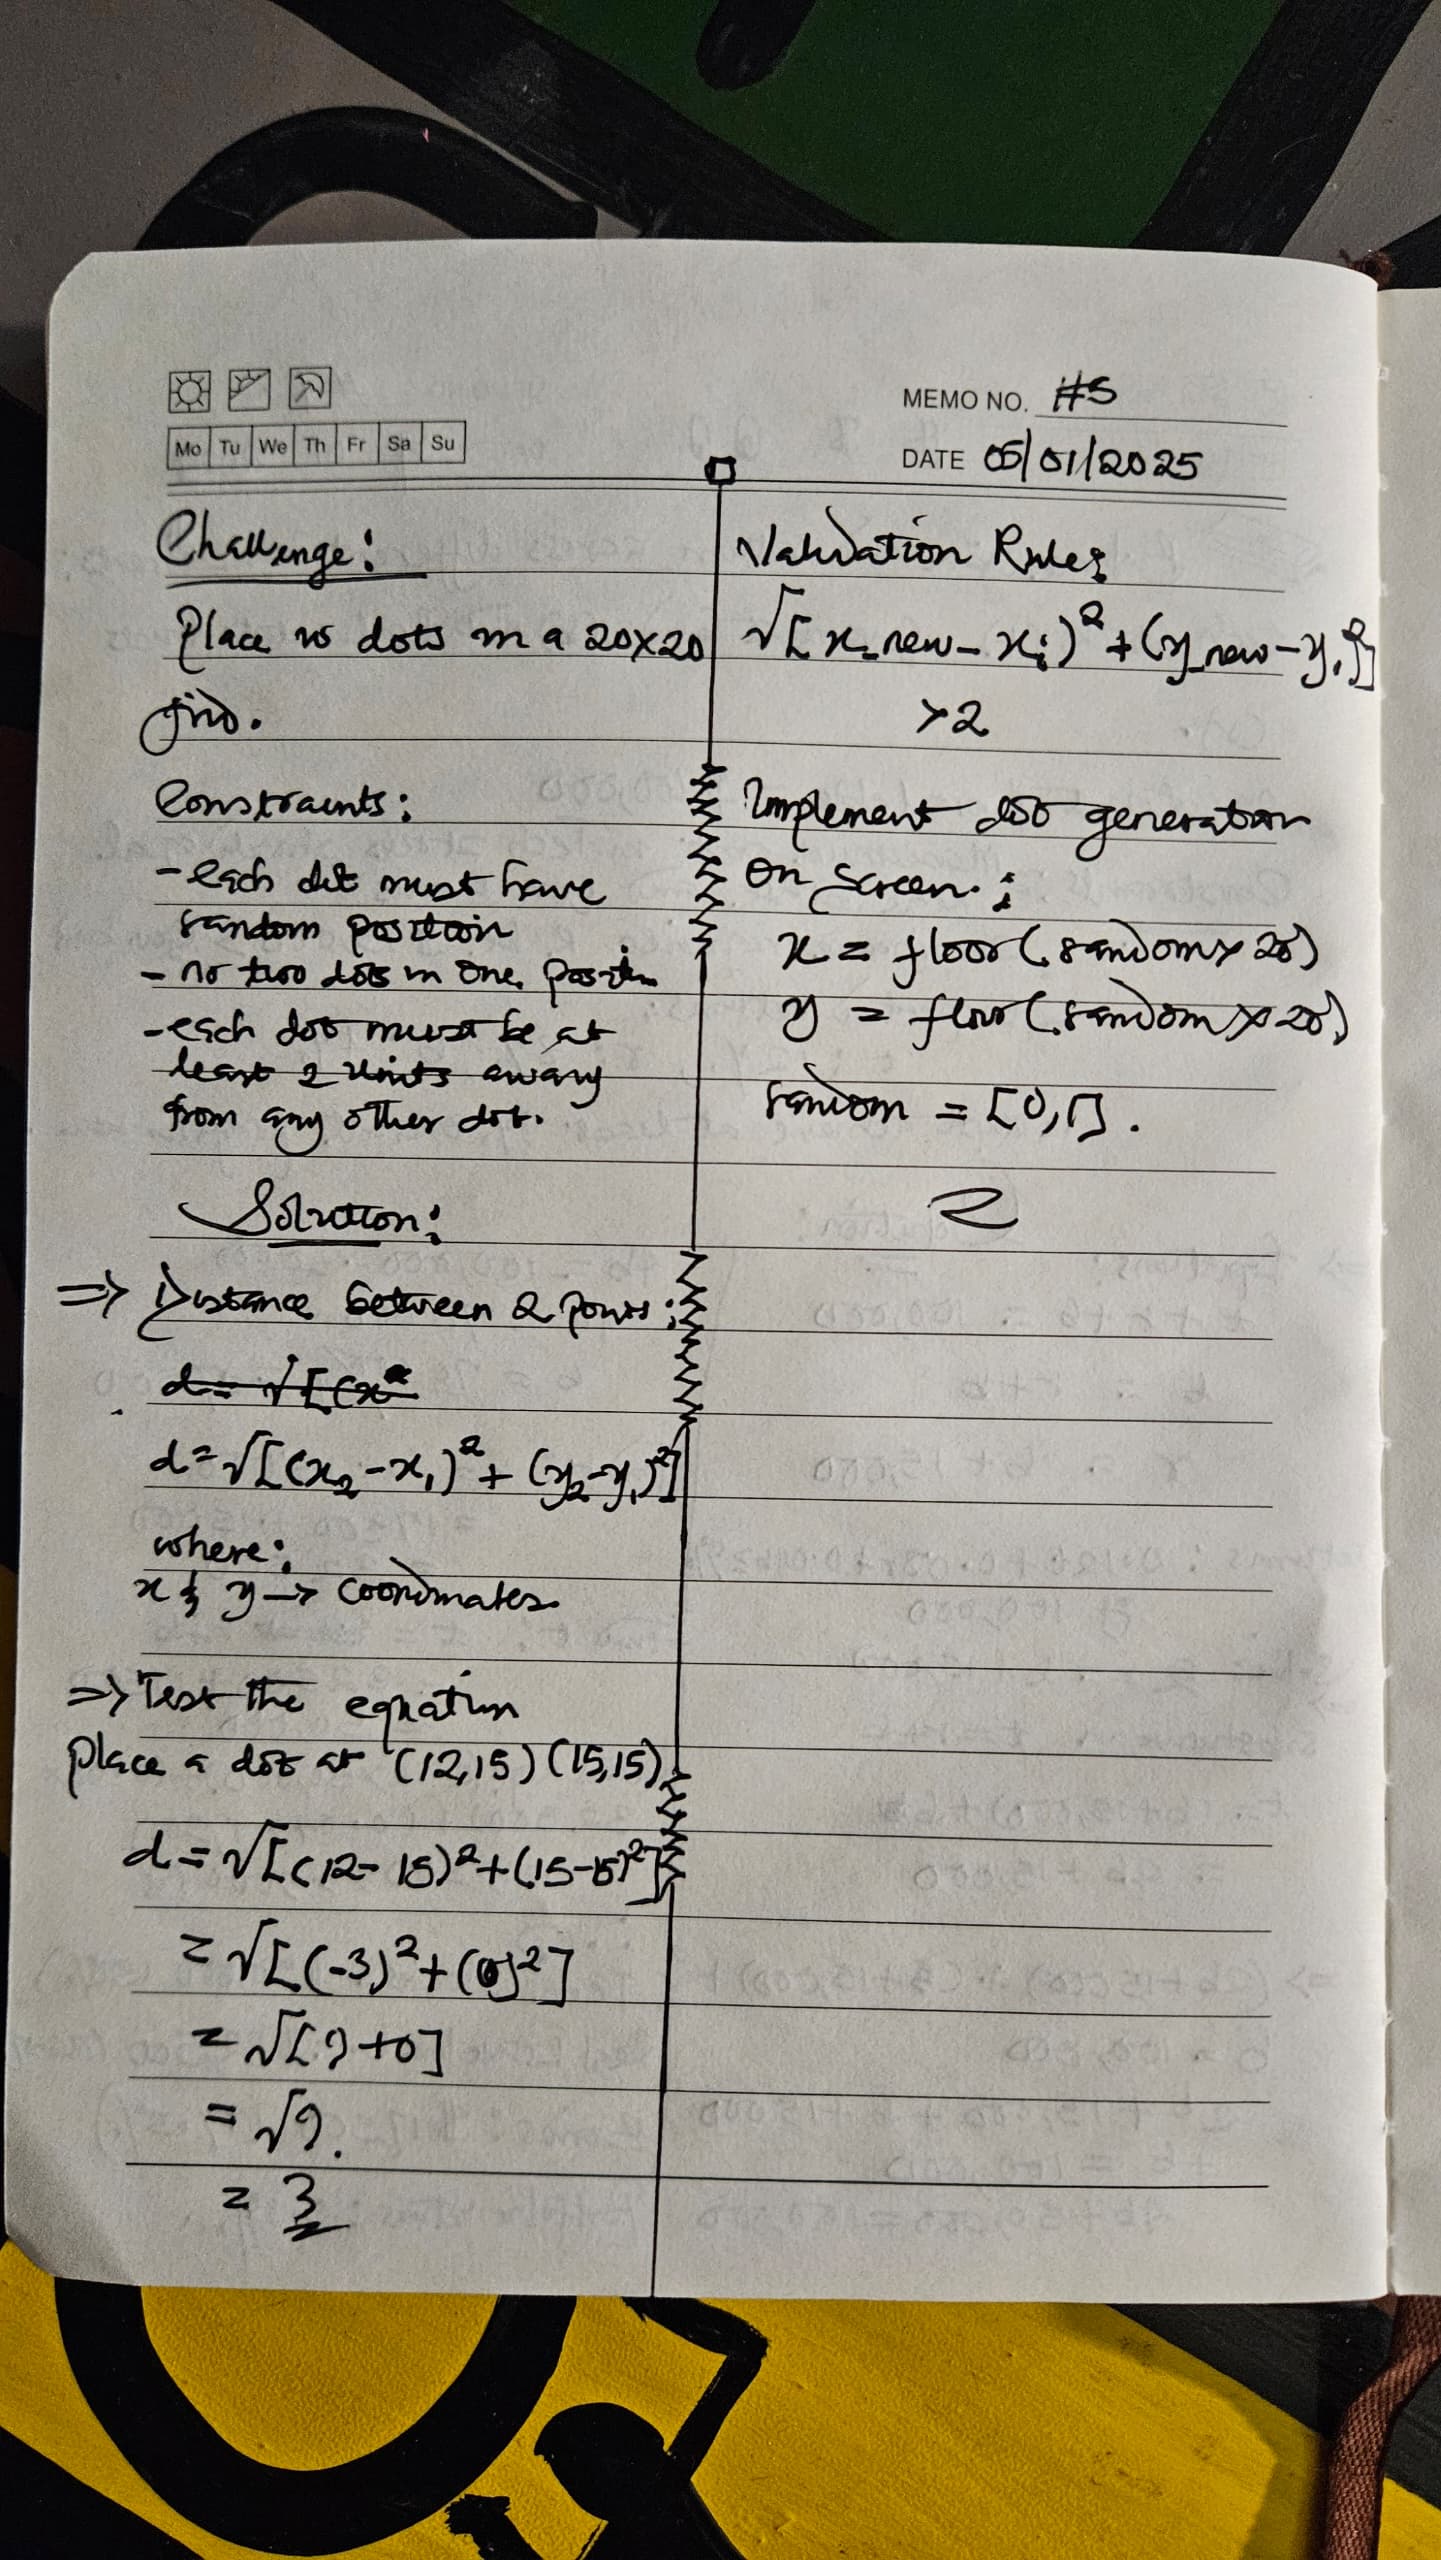 Mo Tu We Th Fr Sa Su
MEMO NO. #5
DATE 05/01/2025
Challenge:
Place 10 dots in a 20x20
grid.
Constraints:
- each dot must have
random position
- no two dots in one position
- each dot must be at
least 2 units away
from any other dot.
Solution:
=> Distance between 2 points:
d = √[(x²
d = √[(x₂-x₁)² + (y₂-y₁)²]
where:
x & y -> coordinates.
=> Test the equation
Place a dot at (12,15) (15,15)
d = √[(12-15)²+(15-15)²]
= √[(-3)²+(0)²]
= √[9+0]
= √9.
= 3
Validation Rules
√[x_new-xi)²+(y_new-yi)²]
>2
Implement dot generation
on screen:
x = floor(random x 20)
y = floor(random x 20)
random = [0,1].